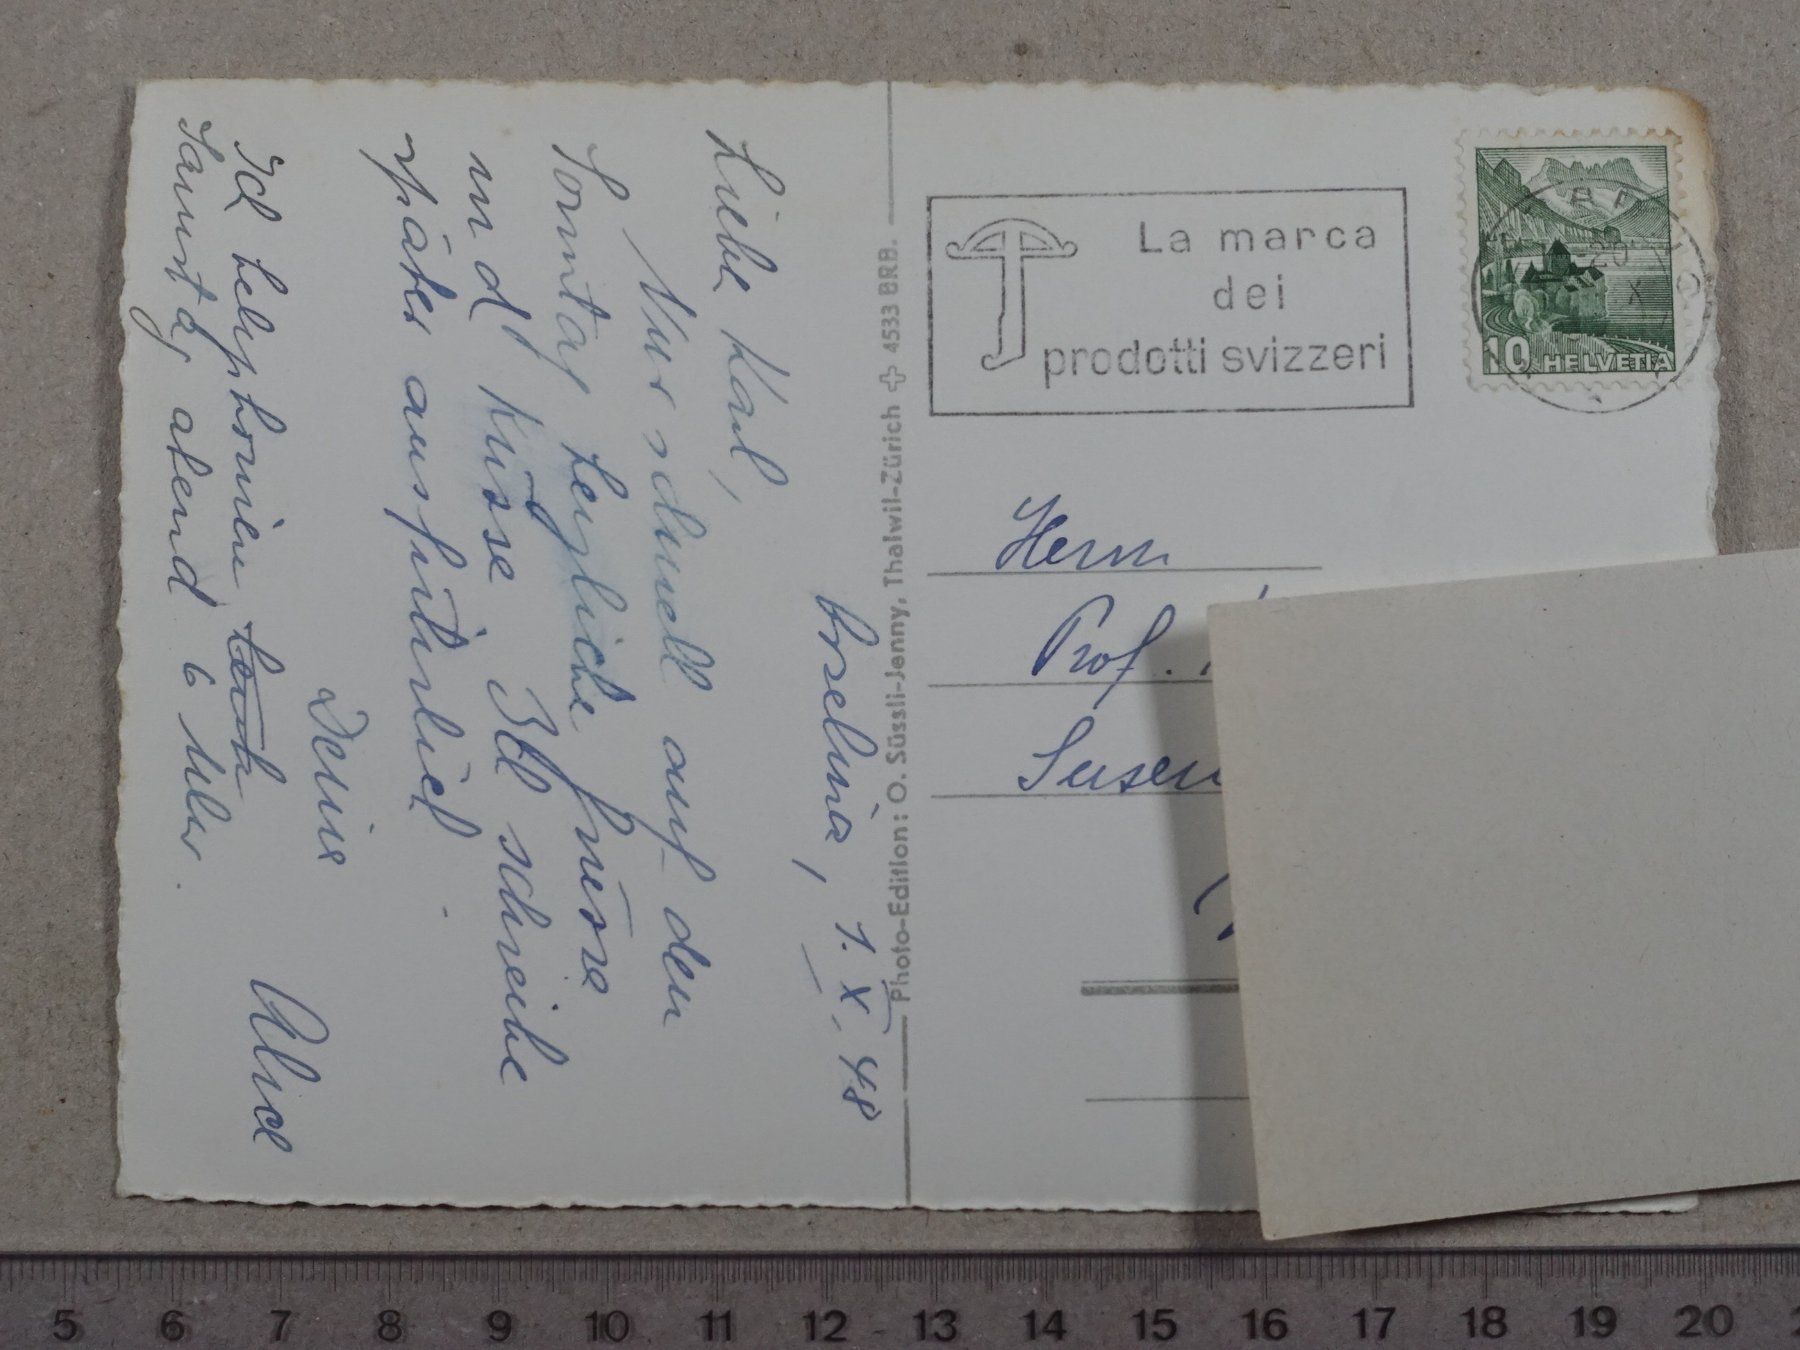 Orselina, 1. X. 48
Liebe Karl,
Nur schnell auf den
Sonntag herzliche Grüsse
und Küsse Ich schreibe
später ausführlich.
Deine
Alice
Ich telephoniere
Samstag abend 6 Uhr.
Photo-Edition: O. Süssli-Jenny, Thalwil-Zürich 4533 BRB.
La marca
dei
prodotti svizzeri
10 HELVETIA
20
X
Herrn
Prof.
5 6 7 8 9 10 11 12 13 14 15 16 17 18 19 20